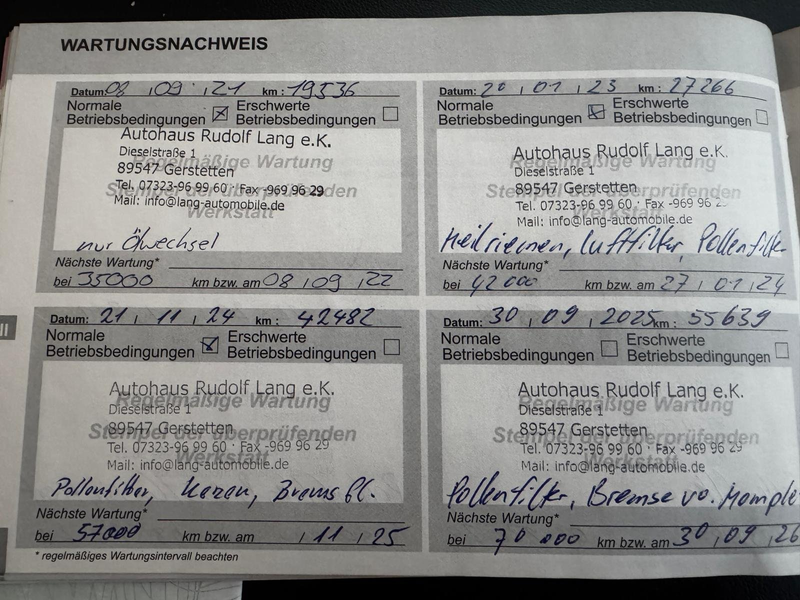 WARTUNGSNACHWEIS
Datum: 08 , 09 , 21 km : 19536
Normale Betriebsbedingungen ☒ Erschwerte Betriebsbedingungen ☐
Regelmäßige Wartung
Stempel der überprüfenden
Werkstatt
Autohaus Rudolf Lang e.K.
Dieselstraße 1
89547 Gerstetten
Tel. 07323-96 99 60 · Fax -969 96 29
Mail: info@lang-automobile.de
nur Ölwechsel
Nächste Wartung*
bei 35000 km bzw. am 08 , 09 , 22
Datum: 20 , 01 , 23 km : 27266
Normale Betriebsbedingungen ☒ Erschwerte Betriebsbedingungen ☐
Regelmäßige Wartung
Stempel der überprüfenden
Werkstatt
Autohaus Rudolf Lang e.K.
Dieselstraße 1
89547 Gerstetten
Tel. 07323-96 99 60 · Fax -969 96 2
Mail: info@lang-automobile.de
Keilriemen, Luftfilter, Pollenfilter
Nächste Wartung*
bei 42000 km bzw. am 27 , 01 , 24
Datum: 21 , 11 , 24 km : 42482
Normale Betriebsbedingungen ☒ Erschwerte Betriebsbedingungen ☐
Regelmäßige Wartung
Stempel der überprüfenden
Werkstatt
Autohaus Rudolf Lang e.K.
Dieselstraße 1
89547 Gerstetten
Tel. 07323-96 99 60 · Fax -969 96 29
Mail: info@lang-automobile.de
Pollenfilter, Kerzen, Bremsfl.
Nächste Wartung*
bei 57000 km bzw. am , 11 , 25
* regelmäßiges Wartungsintervall beachten
Datum: 30 , 09 , 2025 km : 55639
Normale Betriebsbedingungen ☐ Erschwerte Betriebsbedingungen ☐
Regelmäßige Wartung
Stempel der überprüfenden
Werkstatt
Autohaus Rudolf Lang e.K.
Dieselstraße 1
89547 Gerstetten
Tel. 07323-96 99 60 · Fax -969 96 29
Mail: info@lang-automobile.de
Pollenfilter, Bremse vo. Komple
Nächste Wartung*
bei 70 000 km bzw. am 30 , 09 , 26